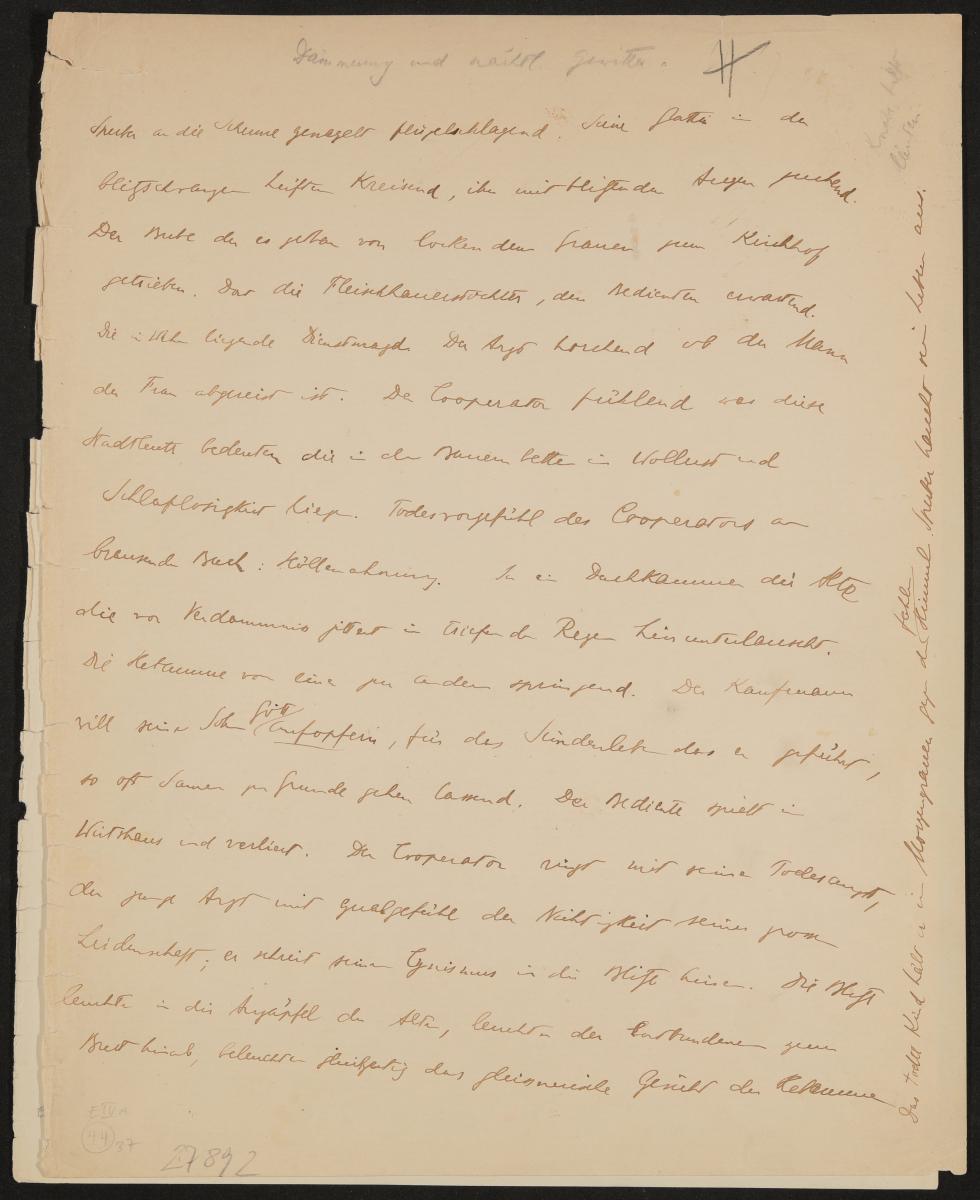 Dämmerung und nächtl. Gewitter.
Sperber an die Scheune genagelt flügelschlagend. Seine Gattin in den
blitzschwangern Lüften Kreisend, ihn mit blitzenden Augen suchend.
Der Bube der es gethan von lockendem Grauen zum Kirchhof
getrieben. Dort die Fleischhauerstochter, den Bedienten erwartend.
Die in Wehn liegende Dienstmagd. Der Arzt horchend ob der Mann
der Frau abgereist ist. Der Cooperator fühlend was diese
Stadtleute bedeuten die in den Bauernbetten in Wollust und
Schlaflosigkeit liegen. Todesvorgefühl des Cooperators am
brausenden Bach: Höllenahnung. In ein Dachkammer die Alte
die vor Verdammnis zittert in triefenden Regen hinunterlauscht.
Die Hebamme von einer zur andern springend. Der Kaufmann
will seinen Sohn Gott aufopfern, für das Sünderleben das er geführt,
so oft Samen zu Grunde gehen lassend. Der Bediente spielt im
Wirtshaus und verliert. Der Cooperator ringt mit seiner Todesangst,
der junge Arzt mit Qualgefühl der Nichtigkeit seiner grossen
Leidenschaft; er schreit seinen Cynismus in die Blitze hinein. Die Blitze
leuchten in die Augäpfel der Alten, leuchten der Entbundenen zum
Brett hinab, beleuchten gleichzeitig das gleisnerische Gesicht der Hebamme
Das todte Kind hält er im Morgengrauen gegen den fahlen Himmel. Sperber haucht sein Leben aus.
E IV A
44 37
27892